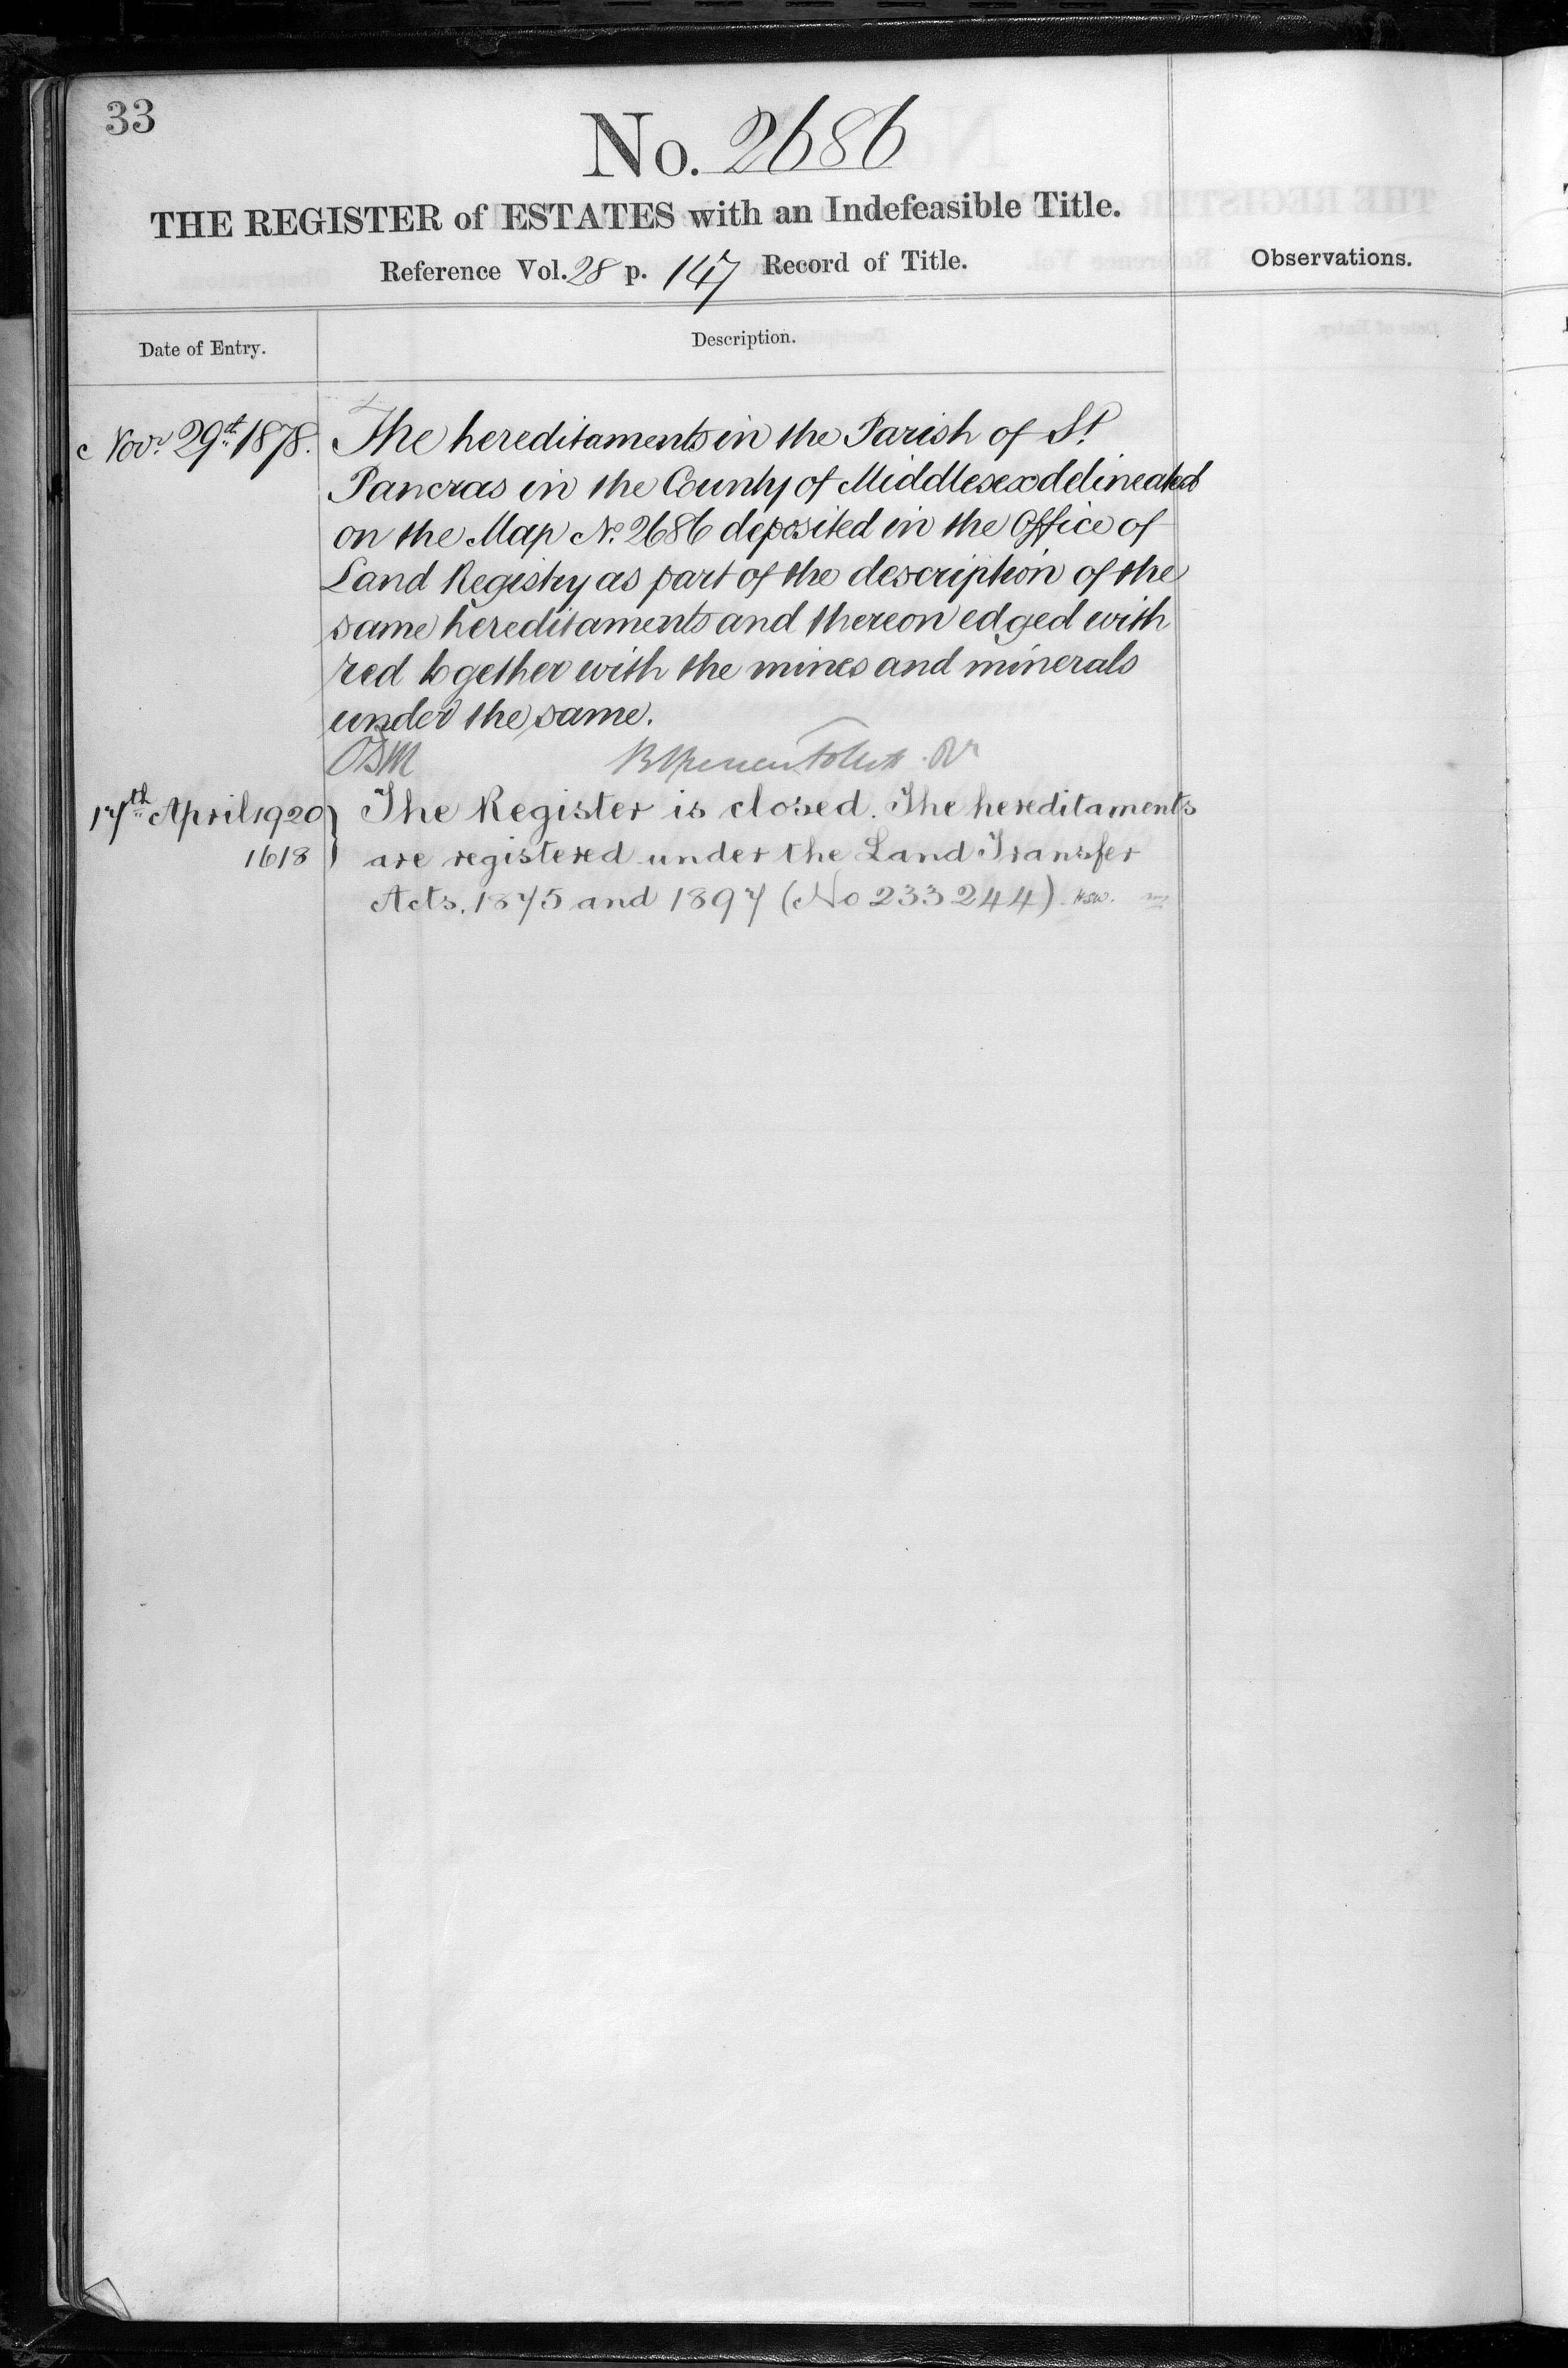 33
No. 2686
THE REGISTER of ESTATES with an Indefeasible Title.
Reference Vol. 28 p. 147 Record of Title.
Observations.
Date of Entry.
Description.
Novr. 29th 1878. The hereditaments in the Parish of St.
Pancras in the County of Middlesex delineated
on the Map No. 2686 deposited in the Office of
Land Registry as part of the description of the
same hereditaments and thereon edged with
red together with the mines and minerals
under the same.
17th April 1920 } The Register is closed. The hereditaments
1618 } are registered under the Land Transfer
Acts, 1875 and 1897 (No 233244)